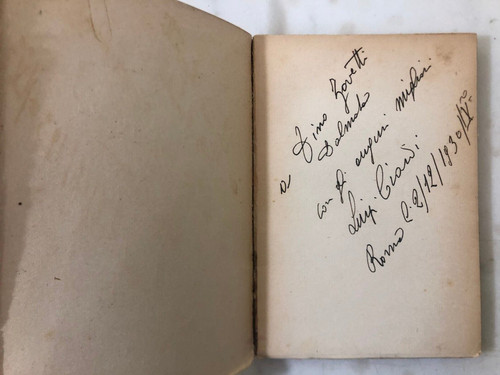 a Zino Zovetti
Dalmata
con gli auguri migliori
Luigi Ciardi
Roma li 2/12/1930/IXº